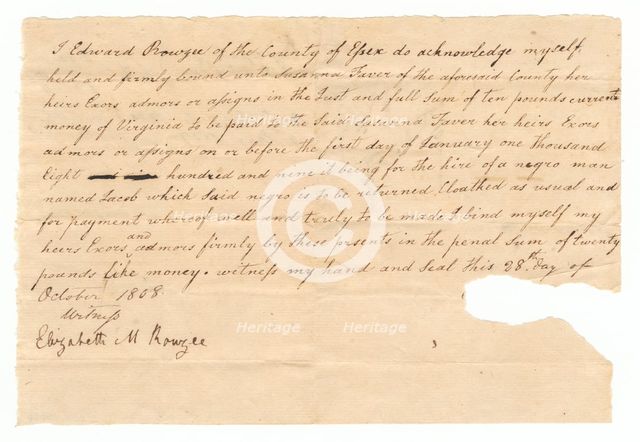 I Edward Rowzee of the County of Essex do acknowledge myself
held and firmly bound unto Susanna Faver of the aforesaid County her
heirs Exors admors or assigns in the Just and full Sum of ten pounds current
money of Virginia to be paid to the Said Susanna Faver her heirs Exors
admors or assigns on or before the first day of January one thousand
Eight hundred and nine it being for the hire of a negro man
named Jacob which Said negro is to be returned Cloathed as usual and
for payment whereof well and truly to be made I bind myself my
heirs Exors and admors firmly by these presents in the penal Sum of twenty
pounds like money. witness my hand and Seal this 28th day of
October 1808.
Witness
Elizabeth M Rowzee
Heritage
Heritage
Heritage
Heritage
Heritage
Heritage